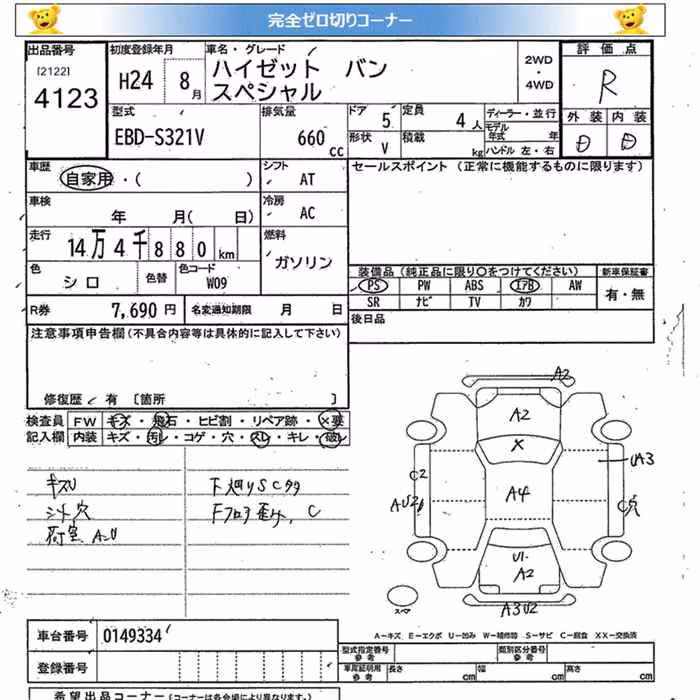 完全ゼロ切りコーナー
出品番号 初度登録年月 車名・グレード 評価点
[2122]
4123 H24 8月 ハイゼット バン
スペシャル
2WD
・
4WD
R
型式 排気量 ドア 5 定員 4人 ディーラー・並行 外装 内装
EBD-S321V 660 CC 形状 V 積載 kg モデル年式 年
ハンドル 左・右 D D
車歴 自家用・( ) シフト AT セールスポイント (正常に機能するものに限ります)
車検 年 月( 日) 冷房 AC
走行 14万4千880km 燃料 ガソリン
色 シロ 色替 色コード W09 装備品(純正品に限り○をつけてください) 新車保証書
PS PW ABS エアB AW 有・無
SR ナビ TV カワ
R券 7,690円 名変通知期限 月 日 後日品
注意事項申告欄(不具合内容等は具体的に記入して下さい)
修復歴 有 [箇所 ]
検査員 FW キズ・飛石・ヒビ割・リペア跡・×要
記入欄 内装 キズ・汚レ・コゲ・穴・スレ・キレ・破レ
キズU 下廻りSCタタ
シート穴 Fフロア歪み、C
荷室 A・U
A2
A2
X
UA3
C2
AU2
A4
C穴
U1
A2
スペア
A3U2
A−キズ E−エクボ U−凹み W−補修跡 S−サビ C−腐食 XX−交換済
車台番号 0149334
型式指定番号 参考 類別区分番号 参考
登録番号 車庫証明用 参考 長さ cm 幅 cm 高さ cm
希望出品コーナー(コーナーは各会場により異なります。)